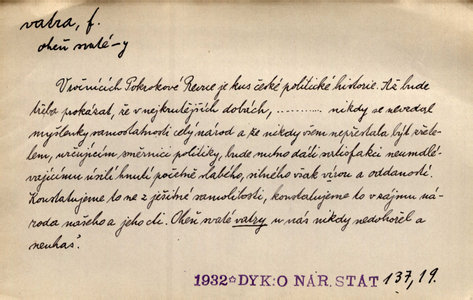 vatra, f.
oheň svaté-y
V ročnících Pokrokové Revue je kus české politické historie. Až bude
třeba prokázat, že v nejkrutějších dobách, .......... nikdy se nevzdal
myšlenky samostatnosti celý národ a že nikdy všem nepřestala být zřete-
lem, určujícím směrnici politiky, bude nutno dáti satisfakci neumdlé-
vajícímu úsilí hnutí početně slabého, silného však vírou a oddaností.
Konstatujeme to ne z ješitné samolibosti, konstatujeme to v zájmu ná-
roda našeho a jeho cti. Oheň svaté vatry u nás nikdy nedohořel a
neuhas.
1932 DYK: O NÁR. STÁT 137, 19.